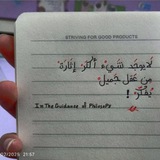 STRIVING FOR GOOD PRODUCTS
لا يوجد شيء أكثر إثارة
من عقل جميل
يفكر !
In The Guidance of Philosofy